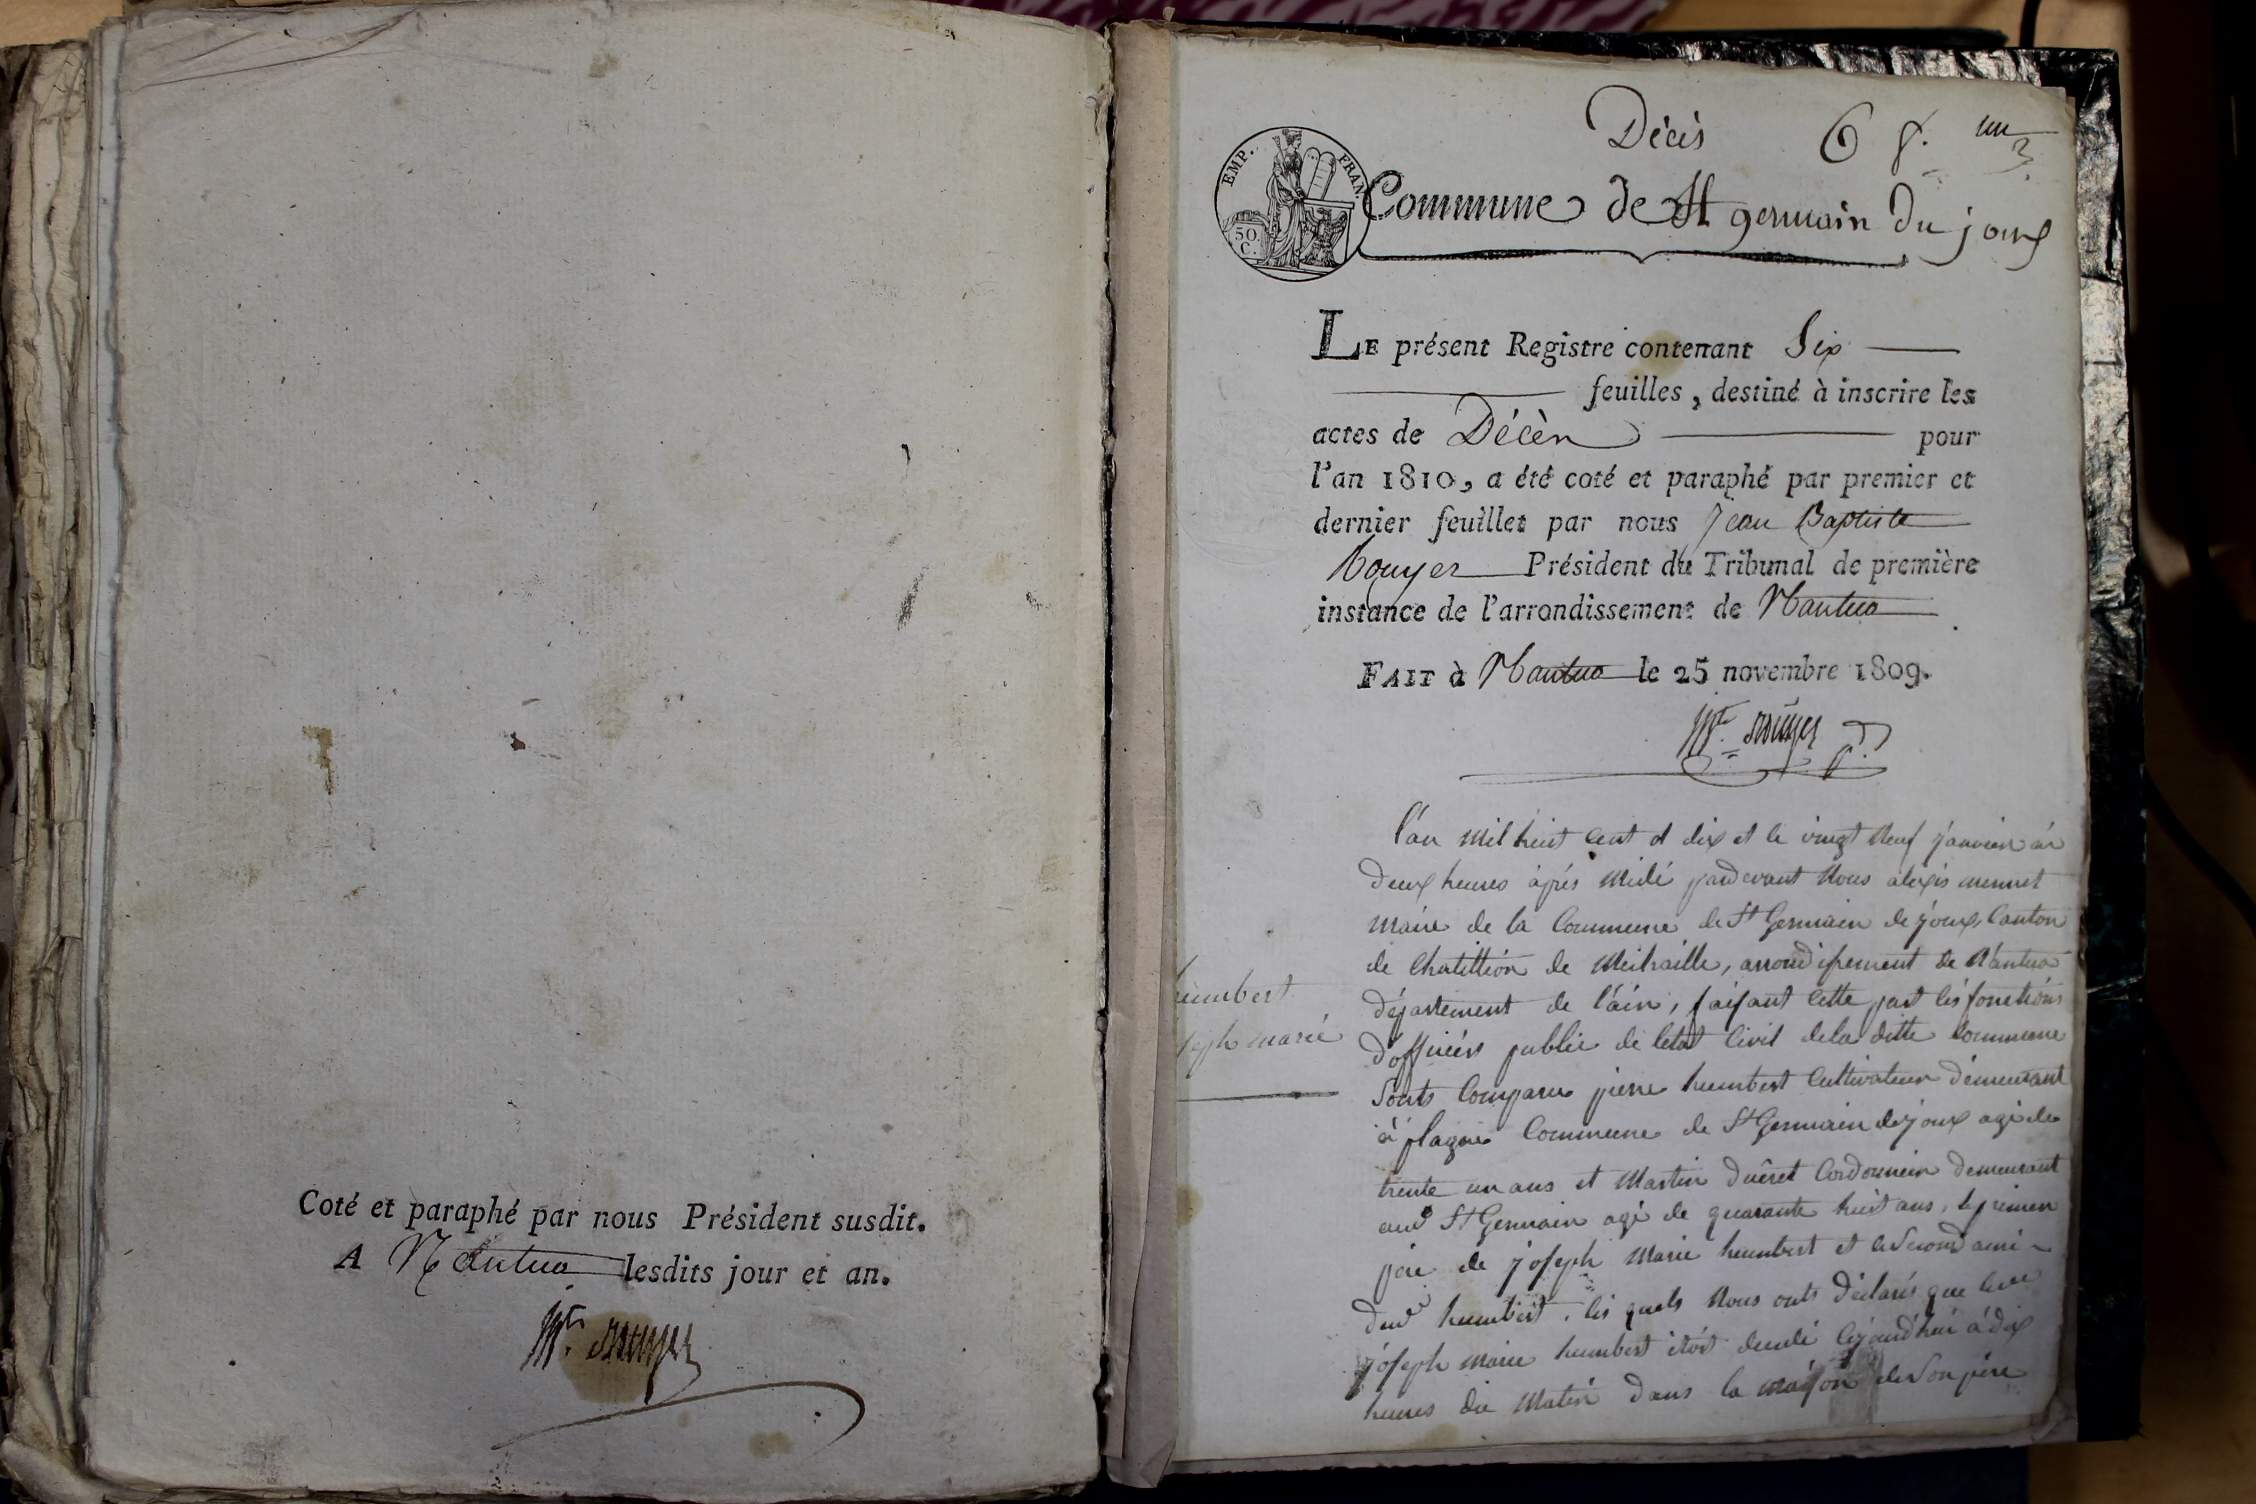 Coté et paraphé par nous Président susdit.
A Nantua lesdits jour et an.
Décès 6 f. un
EMP. FRAN.
50 C.
Commune de St germain du joux
LE présent Registre contenant Six
feuilles, destiné à inscrire les
actes de Décès pour
l'an 1810, a été coté et paraphé par premier et
dernier feuillet par nous Jean Baptiste
Rouyer Président du Tribunal de première
instance de l'arrondissement de Nantua
FAIT à Nantua le 25 novembre 1809.
rouyer
humbert
joseph marie
l'an mil huit cent et dix et le vingt neuf janvier à
deux heures après midi pardevant Nous alexis
maire de la Commune de St Germain de joux, Canton
de Chatillion de Michaille, arrondissement de Nantua
département de l'ain, faisant cette part les fonctions
d'officiér public de letat Civil dela ditte Commune
Sonts Comparu pierre humbert Cultivateur demeurant
à plagne Commune de St Germain de joux agé de
trente un ans et Martin Cordonnier demeurant
aud St Germain agé de quarante huit ans, le premier
père de joseph Marie humbert et le Second ami
dud humbert, les quels Nous onts déclarés que le
joseph marie humbert étoit décédé cejourd'hui à dix
heures du Matin dans la maison de Son père